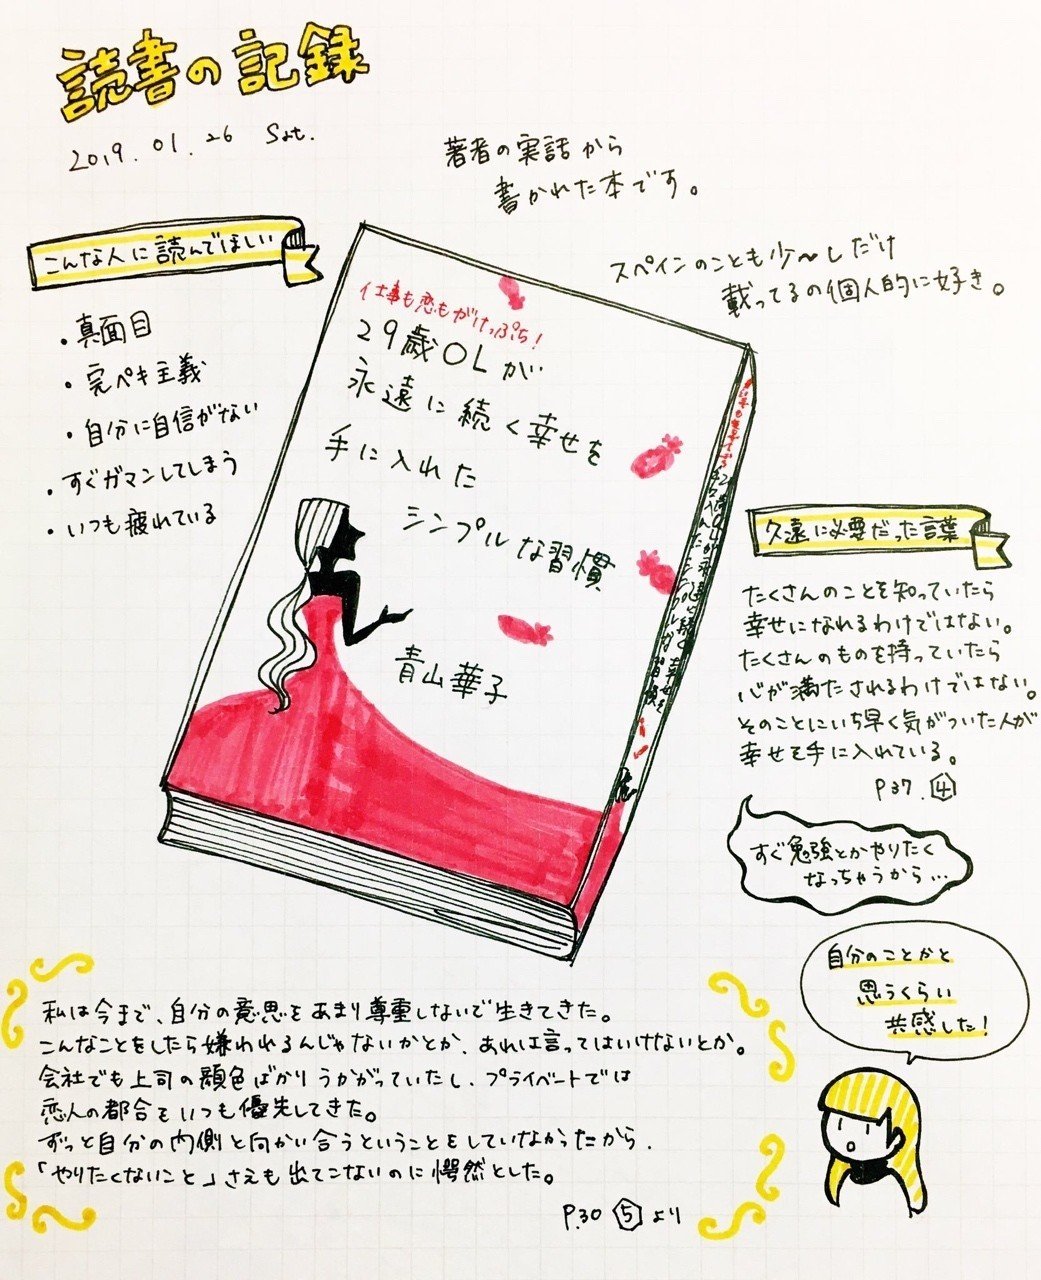 読書の記録
2019.01.26 Sat.
著者の実話から
書かれた本です。
スペインのことも少〜しだけ
載ってるの個人的に好き。
こんな人に読んでほしい
・真面目
・完ペキ主義
・自分に自信がない
・すぐガマンしてしまう
・いつも疲れている
仕事も恋もがけっぷち!
29歳OLが
永遠に続く幸せを
手に入れた
シンプルな習慣
青山華子
久遠に必要だった言葉
たくさんのことを知っていたら
幸せになれるわけではない。
たくさんのものを持っていたら
心が満たされるわけではない。
そのことにいち早く気がついた人が
幸せを手に入れている。
P37.④
すぐ勉強とかやりたく
なっちゃうから…
自分のことかと
思うくらい
共感した!
私は今まで、自分の意思をあまり尊重しないで生きてきた。
こんなことをしたら嫌われるんじゃないかとか、あれは言ってはいけないとか。
会社でも上司の顔色ばかりうかがっていたし、プライベートでは
恋人の都合をいつも優先してきた。
ずっと自分の内側と向かい合うということをしていなかったから、
「やりたくないこと」さえも出てこないのに愕然とした。
P.30 ⑤より